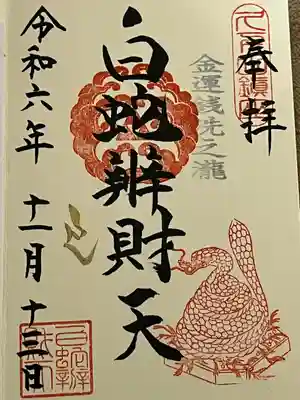 奉拝
金運銭洗之瀧
白蛇辨財天
令和六年 十一月 十三日